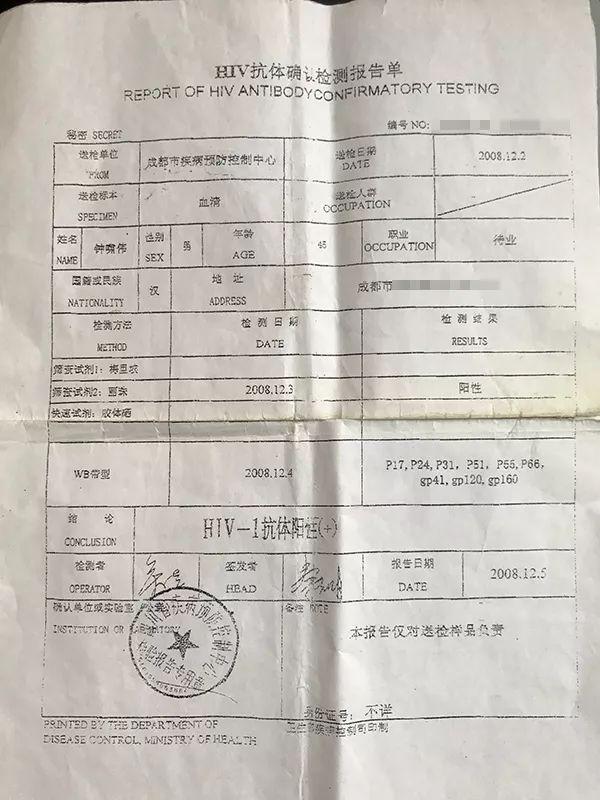 HIV抗体确认检测报告单
REPORT OF HIV ANTIBODYCONFIRMATORY TESTING
编号 NO:
秘密 SECRET
送检单位 FROM 成都市疾病预防控制中心 送检日期 DATE 2008.12.2
送检标本 SPECIMEN 血清 送检人群 OCCUPATION
姓名 NAME 钟啸伟 性别 SEX 男 年龄 AGE 45 职业 OCCUPATION 待业
国籍或民族 NATIONALITY 汉 地址 ADDRESS 成都市
检测方法 METHOD 检测日期 DATE 检测结果 RESULTS
筛查试剂1: 梅里埃
筛查试剂2: 丽珠 2008.12.3 阳性
快速试剂: 胶体硒
WB带型 2008.12.4 P17, P24, P31, P51, P55, P66,
gp41, gp120, gp160
结论 CONCLUSION HIV-1抗体阳性(+)
检测者 OPERATOR 签发者 HEAD 报告日期 DATE 2008.12.5
确认单位或实验室 备注 NOTE
INSTITUTION OR LABORATORY
疾病预防控制中心
检验报告专用章
本报告仅对送检样品负责
身份证号: 不详
PRINTED BY THE DEPARTMENT OF
DISEASE CONTROL, MINISTRY OF HEALTH
卫生部疾病控制司印制